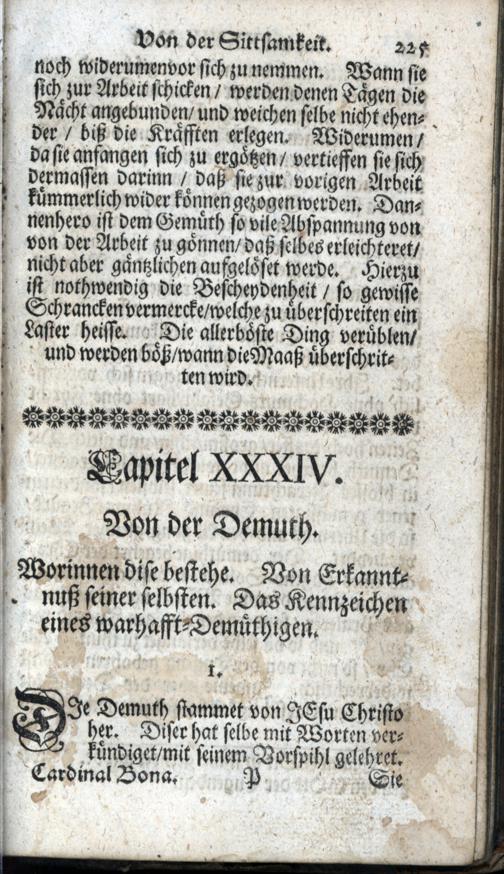 Von der Sittsamkeit. 225
noch widerumenvor sich zu nemmen. Wann sie
sich zur Arbeit schicken / werden denen Tägen die
Nächt angebunden/ und weichen selbe nicht ehen-
der / biß die Kräfften erlegen. Widerumen/
da sie anfangen sich zu ergötzen/ vertieffen sie sich
dermassen darinn / daß sie zur vorigen Arbeit
kümmerlich wider können gezogen werden. Dan-
nenhero ist dem Gemüth so vile Abspannung von
von der Arbeit zu gönnen/ daß selbes erleichteret/
nicht aber gäntzlichen aufgelöset werde. Hierzu
ist nothwendig die Bescheydenheit / so gewisse
Schrancken vermercke/welche zu überschreiten ein
Laster heisse. Die allerböste Ding verüblen/
und werden böß/wann die Maaß überschrit-
ten wird.
Capitel XXXIV.
Von der Demuth.
Worinnen dise bestehe. Von Erkannt-
nuß seiner selbsten. Das Kennzeichen
eines warhafft-Demüthigen.
1.
DIe Demuth stammet von JEsu Christo
her. Diser hat selbe mit Worten ver-
kündiget/mit seinem Vorspihl gelehret.
Cardinal Bona. P Sie